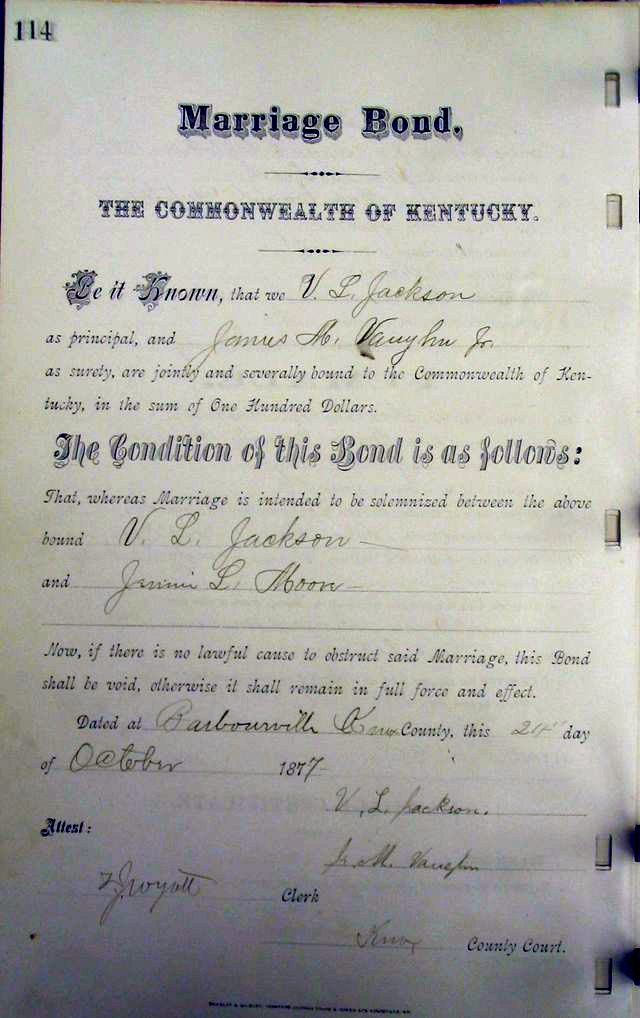 114
Marriage Bond.
THE COMMONWEALTH OF KENTUCKY.
Be it Known, that we V. L. Jackson
as principal, and James M. Vaughn Jr.
as surety, are jointly and severally bound to the Commonwealth of Ken-
tucky, in the sum of One Hundred Dollars.
The Condition of this Bond is as follows:
That, whereas Marriage is intended to be solemnized between the above
bound V. L. Jackson
and Jennie L. Moon
Now, if there is no lawful cause to obstruct said Marriage, this Bond
shall be void, otherwise it shall remain in full force and effect.
Dated at Barbourville Knox County, this 24" day
of October 1877
V. L. Jackson.
Attest:
J. M. Vaughn
Wyatt Clerk
Knox County Court.